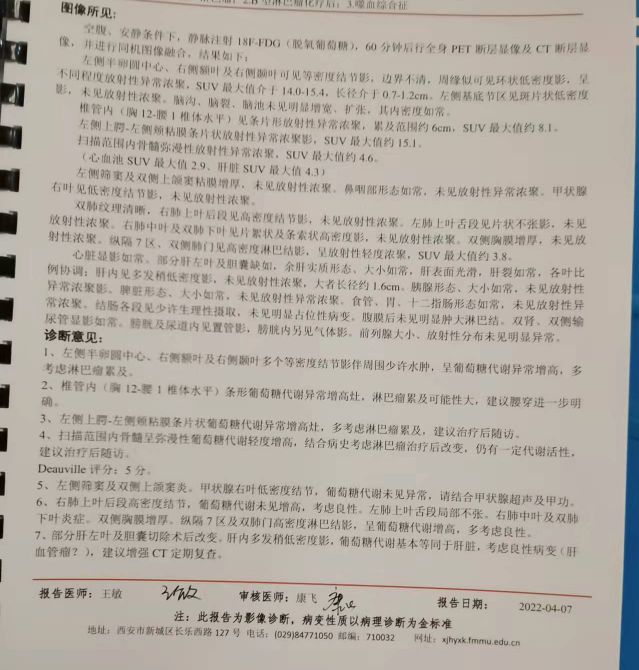 2.B 型淋巴瘤化疗后；3.噬血综合征
图像所见：
空腹、安静条件下，静脉注射 18F-FDG（脱氧葡萄糖），60 分钟后行全身 PET 断层显像及 CT 断层显
像，并进行同机图像融合，结果如下：
左侧半卵圆中心、右侧额叶及右侧颞叶可见等密度结节影，边界不清，周缘似可见环状低密度影，呈
不同程度放射性异常浓聚，SUV 最大值介于 14.0-15.4，长径介于 0.7-1.2cm。左侧基底节区见斑片状低密度
影，未见放射性浓聚。脑沟、脑裂、脑池未见明显增宽、扩张，其内密度如常。
椎管内（胸 12-腰 1 椎体水平）见条片形放射性异常浓聚，累及范围约 6cm，SUV 最大值约 8.1。
左侧上腭-左侧颊粘膜条片状放射性异常浓聚影，SUV 最大值约 15.1。
扫描范围内骨髓弥漫性放射性异常浓聚，SUV 最大值约 4.6。
（心血池 SUV 最大值 2.9、肝脏 SUV 最大值 4.3）
左侧筛窦及双侧上颌窦粘膜增厚，未见放射性浓聚。鼻咽部形态如常，未见放射性异常浓聚。甲状腺
右叶见低密度结节影，未见放射性浓聚。
双肺纹理清晰，右肺上叶后段见高密度结节影，未见放射性浓聚。左肺上叶舌段见片状不张影，未见
放射性浓聚。右肺中叶及双肺下叶见片絮状及条索状高密度影，未见放射性浓聚。双侧胸膜增厚，未见放
射性浓聚。纵隔 7 区、双侧肺门见高密度淋巴结影，呈放射性轻度浓聚，SUV 最大值约 3.8。
心脏显影如常。部分肝左叶及胆囊缺如，余肝实质形态、大小如常，肝表面光滑，肝裂如常，各叶比
例协调；肝内见多发稍低密度影，未见放射性浓聚，大者长径约 1.6cm。胰腺形态、大小如常，未见放射性
异常浓聚影。脾脏形态、大小如常，未见放射性异常浓聚。食管、胃、十二指肠形态如常，未见放射性异
常浓聚。结肠各段见少许生理性摄取，未见明显占位性病变。腹膜后未见明显肿大淋巴结。双肾、双侧输
尿管显影如常。膀胱及尿道内见置管影，膀胱内另见气体影。前列腺大小、放射性分布未见明显异常。
诊断意见：
1、左侧半卵圆中心、右侧额叶及右侧颞叶多个等密度结节影伴周围少许水肿，呈葡萄糖代谢异常增高，多
考虑淋巴瘤累及。
2、椎管内（胸 12-腰 1 椎体水平）条形葡萄糖代谢异常增高灶，淋巴瘤累及可能性大，建议腰穿进一步明
确。
3、左侧上腭-左侧颊粘膜条片状葡萄糖代谢异常增高灶，多考虑淋巴瘤累及，建议治疗后随访。
4、扫描范围内骨髓呈弥漫性葡萄糖代谢轻度增高，结合病史考虑淋巴瘤治疗后改变，仍有一定代谢活性，
建议治疗后随访。
Deauville 评分：5 分。
5、左侧筛窦及双侧上颌窦炎。甲状腺右叶低密度结节，葡萄糖代谢未见异常，请结合甲状腺超声及甲功。
6、右肺上叶后段高密度结节，葡萄糖代谢未见增高，考虑良性。左肺上叶舌段局部不张。右肺中叶及双肺
下叶炎症。双侧胸膜增厚。纵隔 7 区及双肺门高密度淋巴结影，呈葡萄糖代谢增高，多考虑良性。
7、部分肝左叶及胆囊切除术后改变。肝内多发稍低密度影，葡萄糖代谢基本等同于肝脏，考虑良性病变（肝
血管瘤？），建议增强 CT 定期复查。
报告医师：王敏 审核医师：康飞 报告日期： 2022-04-07
注：此报告为影像诊断，病变性质以病理诊断为金标准
地址：西安市新城区长乐西路 127 号 电话：(029)84771050 邮编：710032 网址：xjhyxk.fmmu.edu.cn